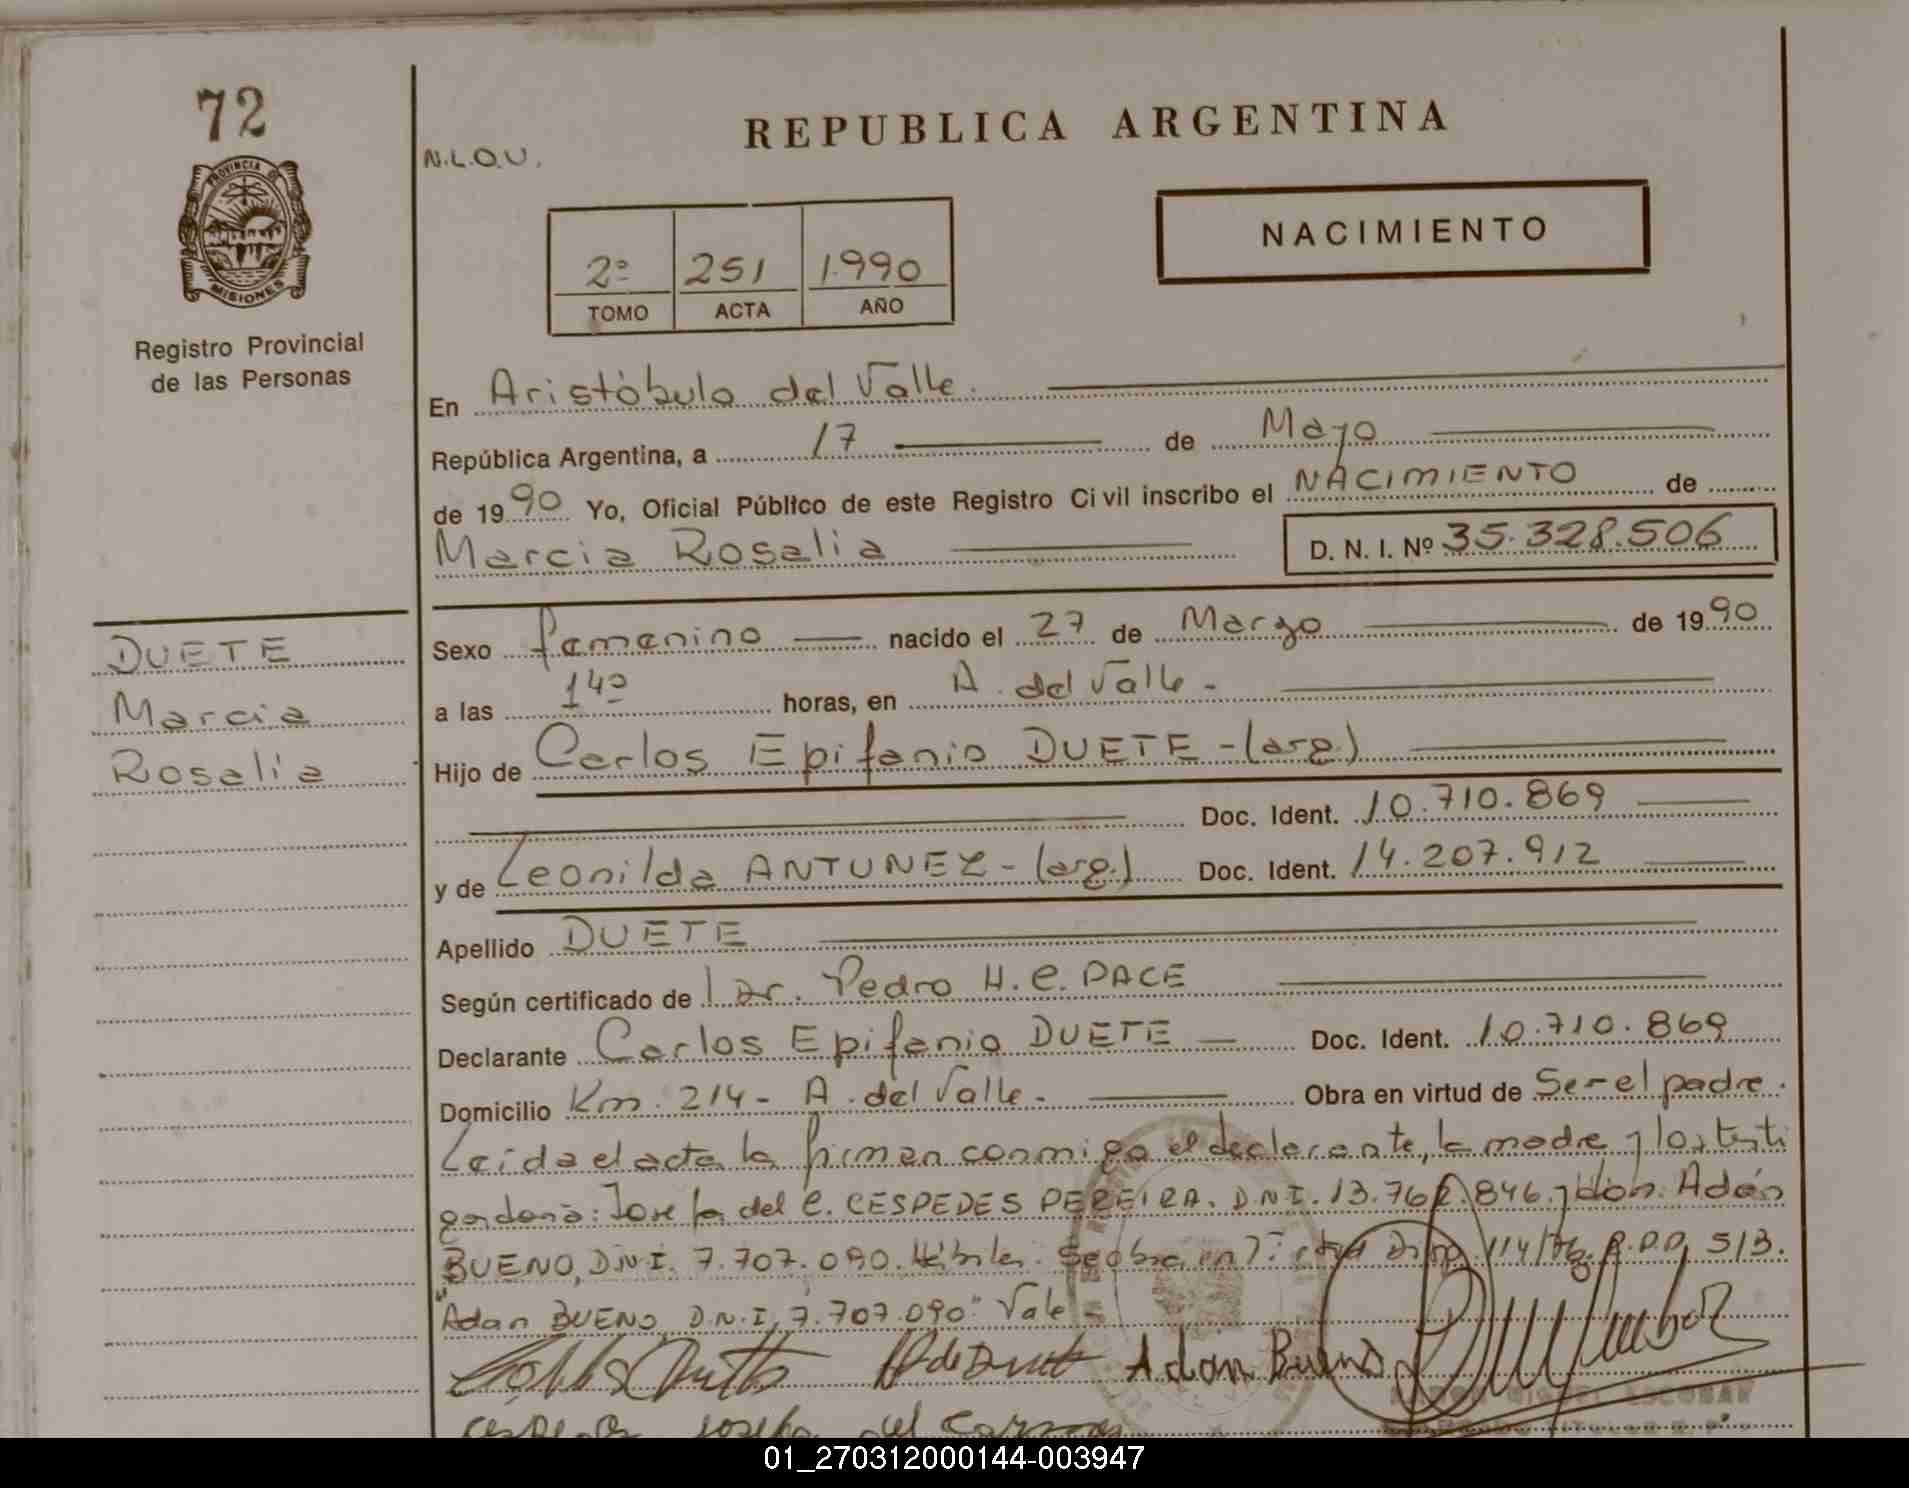 72
PROVINCIA DE
MISIONES
Registro Provincial
de las Personas
DUETE
Marcia
Rosalia
N.L.O.U.
REPUBLICA ARGENTINA
NACIMIENTO
2º 251 1.990
TOMO ACTA AÑO
En Aristóbulo del Valle.
República Argentina, a 17 de Mayo
de 1990 Yo, Oficial Público de este Registro Civil inscribo el NACIMIENTO de
Marcia Rosalia D. N. I. Nº 35.328.506
Sexo femenino nacido el 27 de Marzo de 1990
a las 14º horas, en A. del Valle -
Hijo de Carlos Epifanio DUETE - (arg.)
Doc. Ident. 10.710.869
y de Leonilda ANTUNEZ - (arg.) Doc. Ident. 14.207.912
Apellido DUETE
Según certificado de Dr. Pedro H. C. PACE
Declarante Carlos Epifanio DUETE Doc. Ident. 10.710.869
Domicilio Km. 214 - A. del Valle - Obra en virtud de Ser el padre.
Leida el acta la firman conmigo el declarante, la madre y los testi
gos doña: Josefa del C. CESPEDES PEREIRA, D.N.I. 13.762.846 y don: Adán
BUENO, D.N.I. 7.707.090. Hábiles. Se obra en 114/76. R.P.P. S/B.
"Adan BUENO D.N.I. 7.707.090" Vale -
de Duete Adan Bueno
Josefa del Carmen
ESCOBAR
01_270312000144-003947